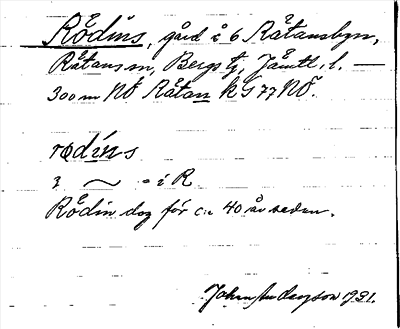 Rådins, gård i 6 Råtansbyn,
Råtans sn, Bergs tg, Jämtl. l. —
300 m NÖ Råtan kG77NÖ.
rødíns
3 ~ = i R
Rådin dog för c:a 40 år sedan.
Johan Anderson 1931.